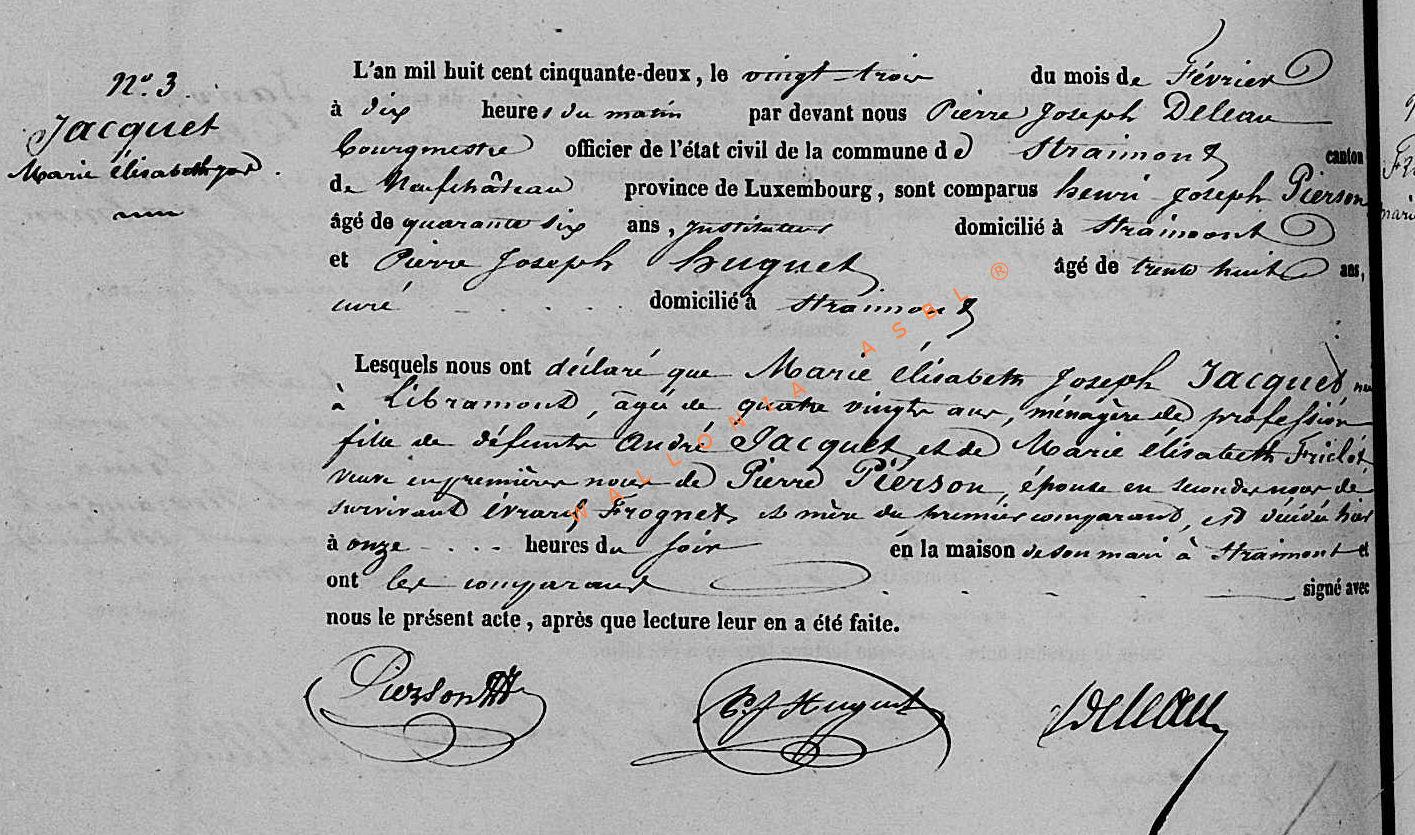 N° 3.
Jacquet
Marie élisabeth
L'an mil huit cent cinquante-deux, le vingt trois du mois de Février
à dix heures du matin par devant nous Pierre Joseph Deleau
bourgmestre officier de l'état civil de la commune de Straimont canton
de Neufchâteau province de Luxembourg, sont comparus henri Joseph Pierson
âgé de quarante six ans, instituteur domicilié à Straimont
et Pierre Joseph huguet âgé de trente huit ans,
curé domicilié à Straimont
Lesquels nous ont déclaré que Marie élisabeth Joseph Jacquet née
à Libramont, âgée de quatre vingts ans, ménagère de profession
fille de défunts andré Jacquet et de Marie élisabeth
veuve en premières noces de Pierre Pierson, épouse en secondes noces de
survivant évrard Frognet, et mère du premier comparant, est décédée hier
à onze heures du soir en la maison de son mari à Straimont et
ont les comparans signé avec
nous le présent acte, après que lecture leur en a été faite.
Pierson
P J Huguet
Deleau
WALLONIA ASBL ®